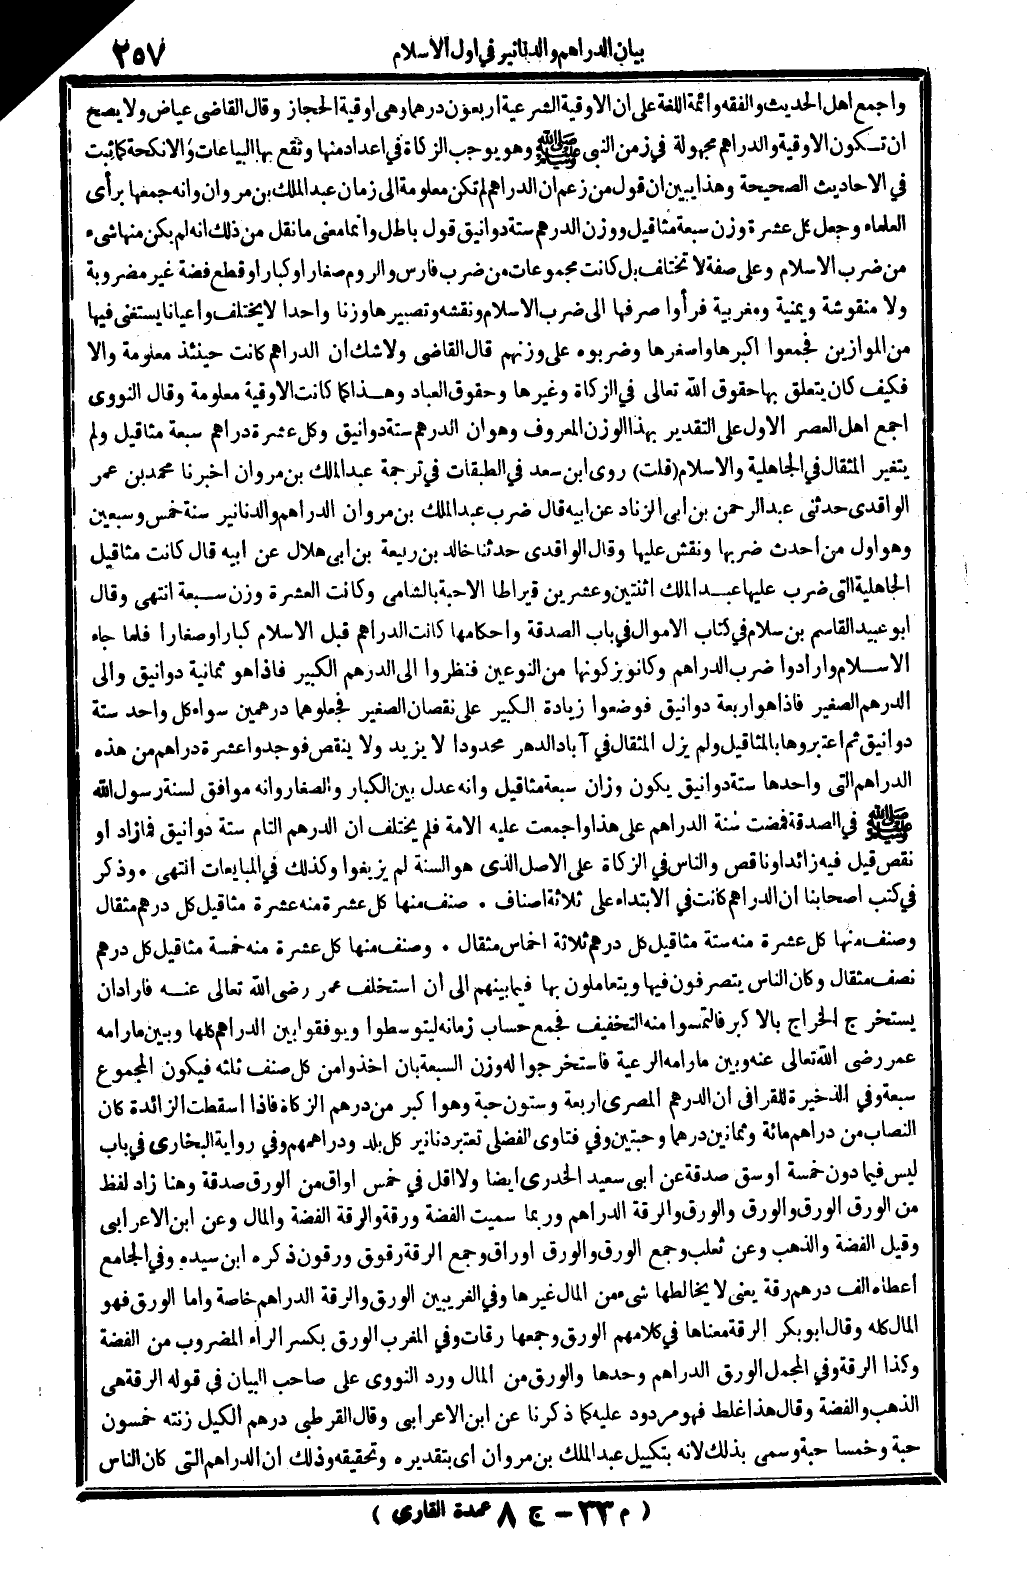 بيان الدراهم والدنانير في اول الاسلام ٢٥٧
واجمع اهل الحديث والفقه وائمة اللغة على ان الاوقية الشرعية اربعون درهما وهى اوقية الحجاز وقال القاضى عياض ولا يصح
ان تكون الاوقية والدراهم مجهولة في زمن النبى ﷺ وهو يوجب الزكاة في اعداد منها وتقع بها البياعات والانكحة كما ثبت
في الاحاديث الصحيحة وهذا يبين ان قول من زعم ان الدراهم لم تكن معلومة الى زمان عبد الملك بن مروان وانه جمعها برأى
العلماء وجعل كل عشرة وزن سبعة مثاقيل ووزن الدرهم ستة دوانيق قول باطل وانما معنى ما نقل من ذلك انه لم يكن منها شىء
من ضرب الاسلام وعلى صفة لا تختلف بل كانت مجموعات من ضرب فارس والروم صغارا وكبارا وقطع فضة غير مضروبة
ولا منقوشة ويمنية ومغربية فرأوا صرفها الى ضرب الاسلام ونقشه وتصييرها وزنا واحدا لا يختلف واعيانا يستغنى فيها
من الموازين فجمعوا اكبرها واصغرها وضربوه على وزنهم قال القاضى ولا شك ان الدراهم كانت حينئذ معلومة والا
فكيف كان يتعلق بها حقوق الله تعالى في الزكاة وغيرها وحقوق العباد وهذا كما كانت الاوقية معلومة وقال النووى
اجمع اهل العصر الاول على التقدير بهذا الوزن المعروف وهو ان الدرهم ستة دوانيق وكل عشرة دراهم سبعة مثاقيل ولم
يتغير المثقال في الجاهلية والاسلام (قلت) روى ابن سعد في الطبقات في ترجمة عبد الملك بن مروان اخبرنا محمد بن عمر
الواقدى حدثنى عبد الرحمن بن ابى الزناد عن ابيه قال ضرب عبد الملك بن مروان الدراهم والدنانير سنة خمس وسبعين
وهو اول من احدث ضربها ونقش عليها وقال الواقدى حدثنا خالد بن ربيعة بن ابى هلال عن ابيه قال كانت مثاقيل
الجاهلية التى ضرب عليها عبد الملك اثنتين وعشرين قيراطا الا حبة بالشامى وكانت العشرة وزن سبعة انتهى وقال
ابو عبيد القاسم بن سلام في كتاب الاموال في باب الصدقة واحكامها كانت الدراهم قبل الاسلام كبارا وصغارا فلما جاء
الاسلام وارادوا ضرب الدراهم وكانو يزكونها من النوعين فنظروا الى الدرهم الكبير فاذا هو ثمانية دوانيق والى
الدرهم الصغير فاذا هو اربعة دوانيق فوضعوا زيادة الكبير على نقصان الصغير فجعلوهما درهمين سواء كل واحد ستة
دوانيق ثم اعتبروها بالمثاقيل ولم يزل المثقال في آباد الدهر محدودا لا يزيد ولا ينقص فوجدوا عشرة دراهم من هذه
الدراهم التى واحدها ستة دوانيق يكون وزان سبعة مثاقيل وانه عدل بين الكبار والصغار وانه موافق لسنة رسول الله
ﷺ في الصدقة فمضت سنة الدراهم على هذا واجمعت عليه الامة فلم يختلف ان الدرهم التام ستة دوانيق فما زاد او
نقص قيل فيه زائد او ناقص والناس في الزكاة على الاصل الذى هو السنة لم يزيغوا وكذلك في المبايعات انتهى • وذكر
في كتب اصحابنا ان الدراهم كانت في الابتداء على ثلاثة اصناف • صنف منها كل عشرة منه عشرة مثاقيل كل درهم مثقال
وصنف منها كل عشرة منه ستة مثاقيل كل درهم ثلاثة اخماس مثقال • وصنف منها كل عشرة منه خمسة مثاقيل كل درهم
نصف مثقال وكان الناس يتصرفون فيها ويتعاملون بها فيما بينهم الى أن استخلف عمر رضى الله تعالى عنه فاراد ان
يستخرج الخراج بالاكبر فالتمسوا منه التخفيف فجمع حساب زمانه ليتوسطوا ويوفقوا بين الدراهم كلها وبين مارامه
عمر رضى الله تعالى عنه وبين مارامه الرعية فاستخرجوا له وزن السبعة بان اخذوا من كل صنف ثلثه فيكون المجموع
سبعة وفي الذخيرة للقرافى ان الدرهم المصرى اربعة وستون حبة وهو اكبر من درهم الزكاة فاذا اسقطت الزائدة كان
النصاب من دراهم مائة وثمانين درهما وحبتين وفي فتاوى الفضلى تعتبر دنانير كل بلد ودراهمهم وفي رواية البخارى في باب
ليس فيما دون خمسة اوسق صدقة عن ابى سعيد الخدرى ايضا ولا اقل في خمس اواق من الورق صدقة وهنا زاد لفظ
من الورق الورق والورق والورق والرقة الدراهم وربما سميت الفضة ورقة والرقة الفضة والمال وعن ابن الاعرابى
وقيل الفضة والذهب وعن ثعلب وجمع الورق والورق اوراق وجمع الرقة رقوق ورقون ذكره ابن سيده وفي الجامع
اعطاه الف درهم رقة يعنى لا يخالطها شىء من المال غيرها وفي الغريبين الورق والرقة الدراهم خاصة واما الورق فهو
المال كله وقال ابو بكر الرقة معناها في كلامهم الورق وجمعها رقات وفي المغرب الورق بكسر الراء المضروب من الفضة
وكذا الرقة وفي المجمل الورق الدراهم وحدها والورق من المال ورد النووى على صاحب البيان في قوله الرقة هى
الذهب والفضة وقال هذا غلط فهو مردود عليه كما ذكرنا عن ابن الاعرابى وقال القرطبى درهم الكيل زنته خمسون
حبة وخمسا حبة وسمى بذلك لانه بتكييل عبد الملك بن مروان اى بتقديره وتحقيقه وذلك ان الدراهم التى كان الناس
( م ٣٣ – ج ٨ عمدة القارى )